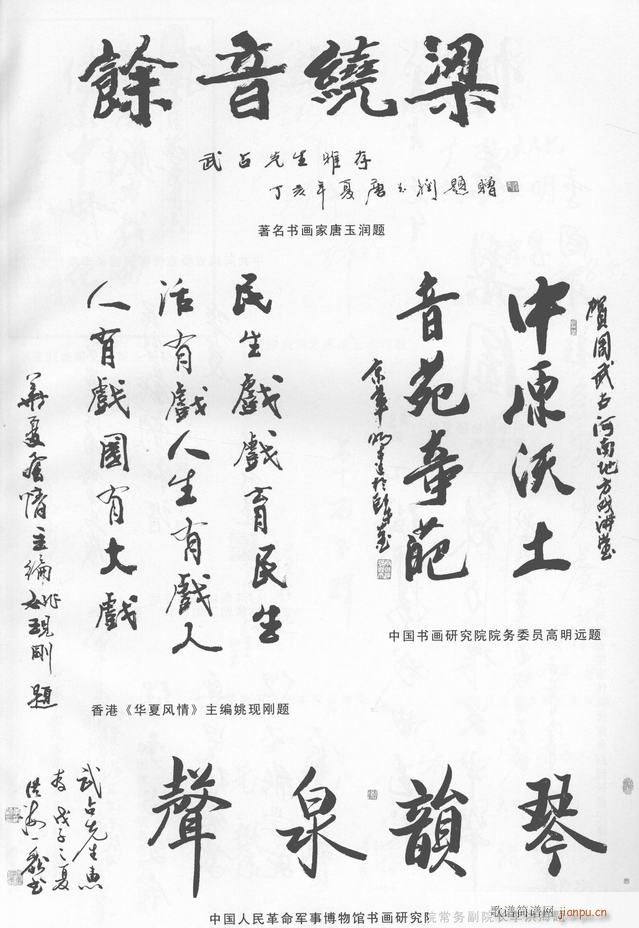 餘音繞梁
武占先生雅存
丁亥年夏唐玉润題贈
著名书画家唐玉润题
賀周武占河南地方戏讲堂
中原沃土
音苑奇葩
京華明远於
中国书画研究院院务委员高明远题
民生戲戲育民生
活有戲人生有戲人
人有戲國有大戲
華夏風情主编姚現刚題
香港《华夏风情》主编姚现刚题
琴韻泉聲
武占先生惠
存戊子之夏
洪海书
中国人民革命军事博物馆书画研究院常务副院长李洪海
歌谱简谱网
www.jianpu.cn